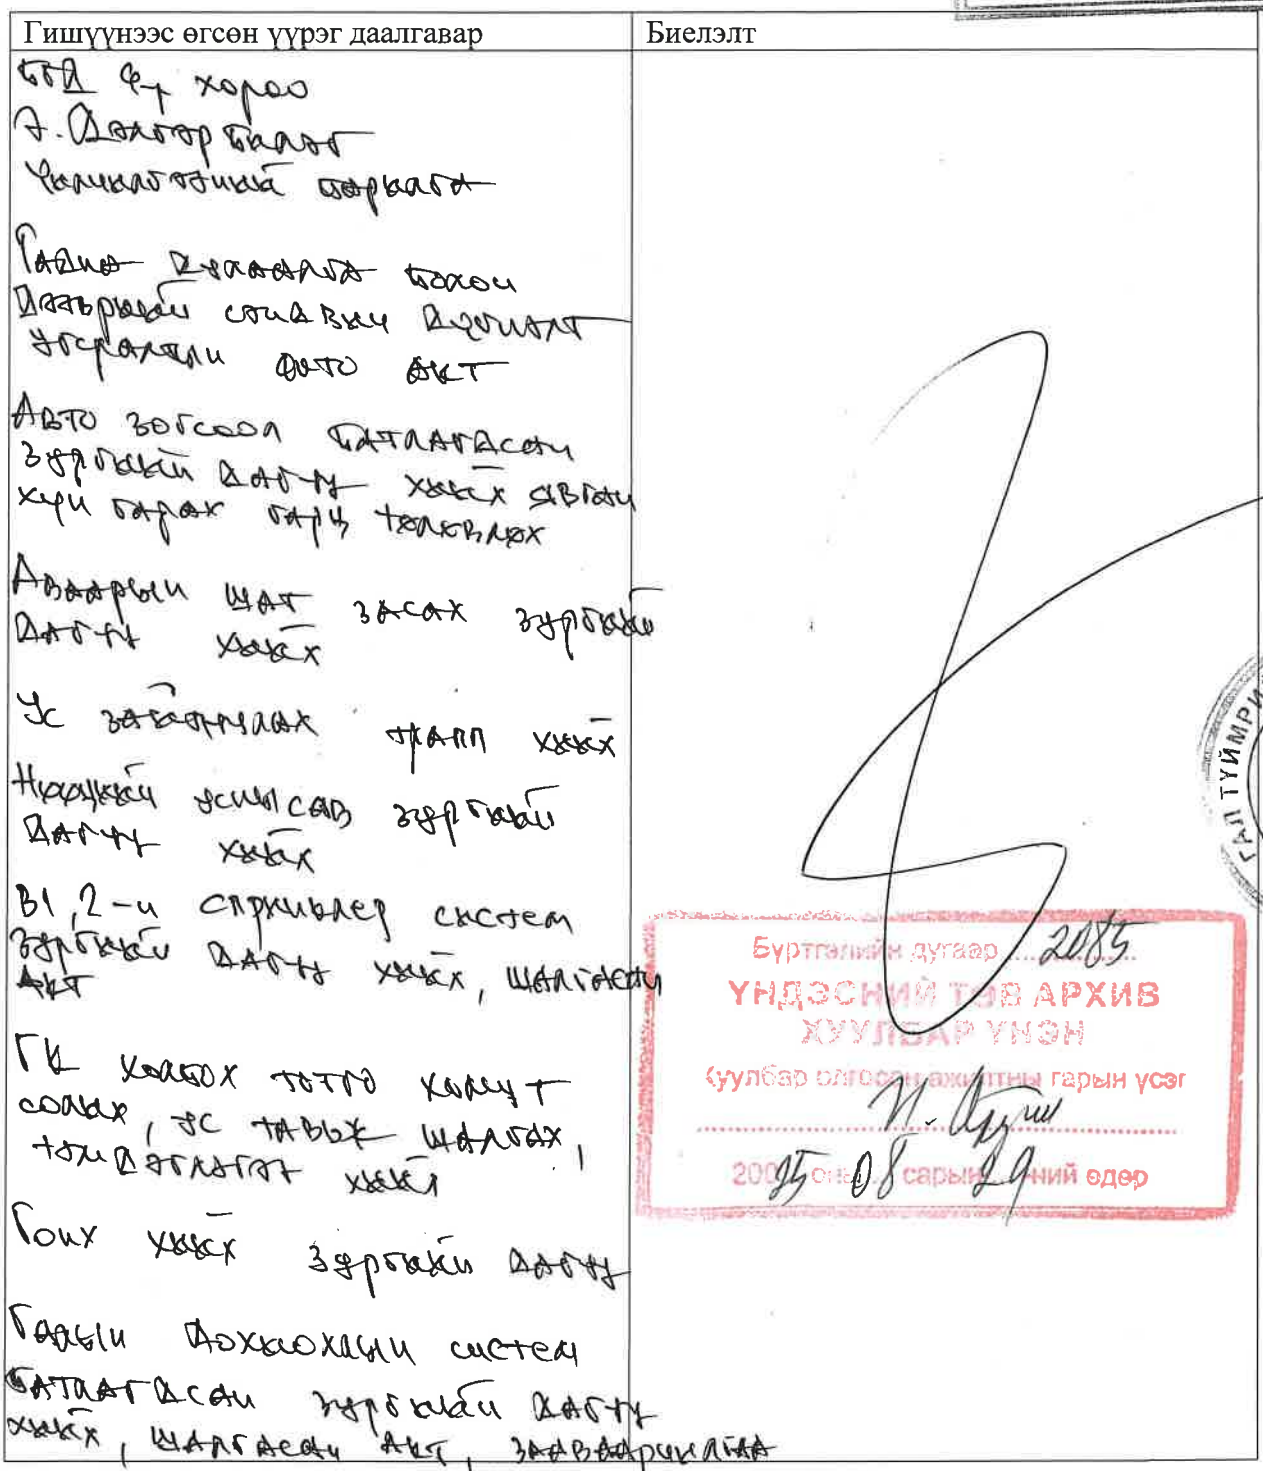 Гишүүнээс өгсөн үүрэг даалгавар
Биелэлт
БГД 4-р хороо
Үйлчилгээний барилга
Гадна дулаалга болон
фото акт
Авто зогсоол батлагдсан
зургийн дагуу хийх явган
хүн гарах гарц төлөвлөх
Аваарын шат засах зургийн
дагуу хийх
Ус зайлуулах трапп хийх
Нөөцийн усны сав зургийн
дагуу хийх
В1,2-н спринклер систем
зургийн дагуу хийх, шалгасан
акт
ГК холбох тотго хомут
солих, ус тавьж шалгах,
тэмдэглэгээ хийх
Гоих хийх зургийн дагуу
Галын дохиоллын систем
батлагдсан зургийн дагуу
хийх, шалгасан акт, зааварчилгаа
ГАЛ ТҮЙМРИ
Бүртгэлийн дугаар 2085
ҮНДЭСНИЙ ТӨВ АРХИВ
ХУУЛБАР ҮНЭН
Хуулбар олгосон ажилтны гарын үсэг
2025 оны 08 сарын 29 ний өдөр